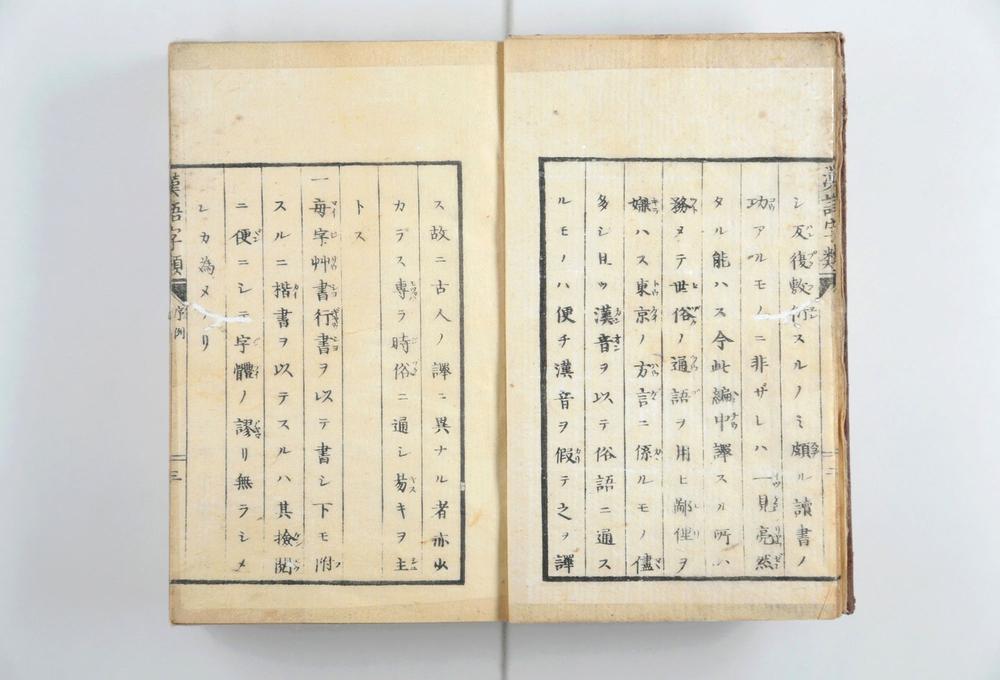 漢語字類
シ反復敷衍スルノミ頗ル讀書ノ
功アルモノニ非ザレハ一見亮然
タル能ハス今此編中譯スル所ハ
務メテ世俗ノ通語ヲ用ヒ鄙俚ヲ
嫌ハス東京ノ方言ニ係ルモノ儘
多シ且ツ漢音ヲ以テ俗語ニ通ス
ルモノハ便チ漢音ヲ假テ之ヲ譯
ス故ニ古人ノ譯ニ異ナル者亦少
カラス専ラ時俗ニ通シ易キヲ主
トス
一毎字艸書行書ヲ以テ書シ下モ附
スルニ楷書ヲ以テスルハ其撿閲
ニ便ニシテ字體ノ謬リ無ラシメ
ンカ為メナリ
漢語字類 序例 三